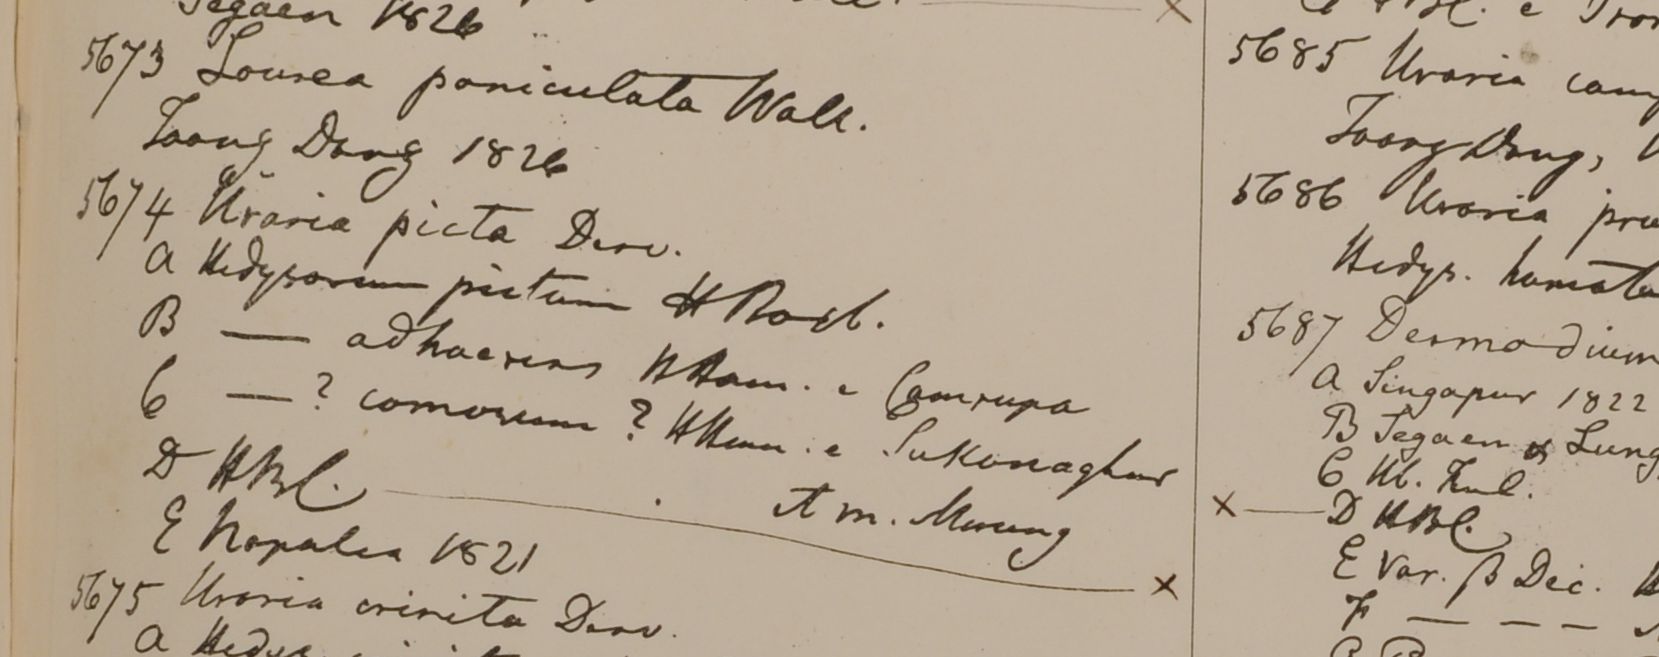 Segaen 1826
5673 Lourea paniculata Wall.
Taong Dong 1826
5674 Uraria picta Desv.
A Hedysarum pictum H Roxb.
B — adhaerens HHam. e Camrupa
C — ? comosum ? HHam. e Sukanaghur
et m. Morung
D HBC.
E Napalia 1821
5675 Uraria crinita Desv.
A
5685 Uraria
Taong Dong,
5686 Uraria
Hedys.
5687 Desmodium
A Singapur 1822
B Segaen &
C Hb.
D HBC.
E Var. β Dec.
F — — —